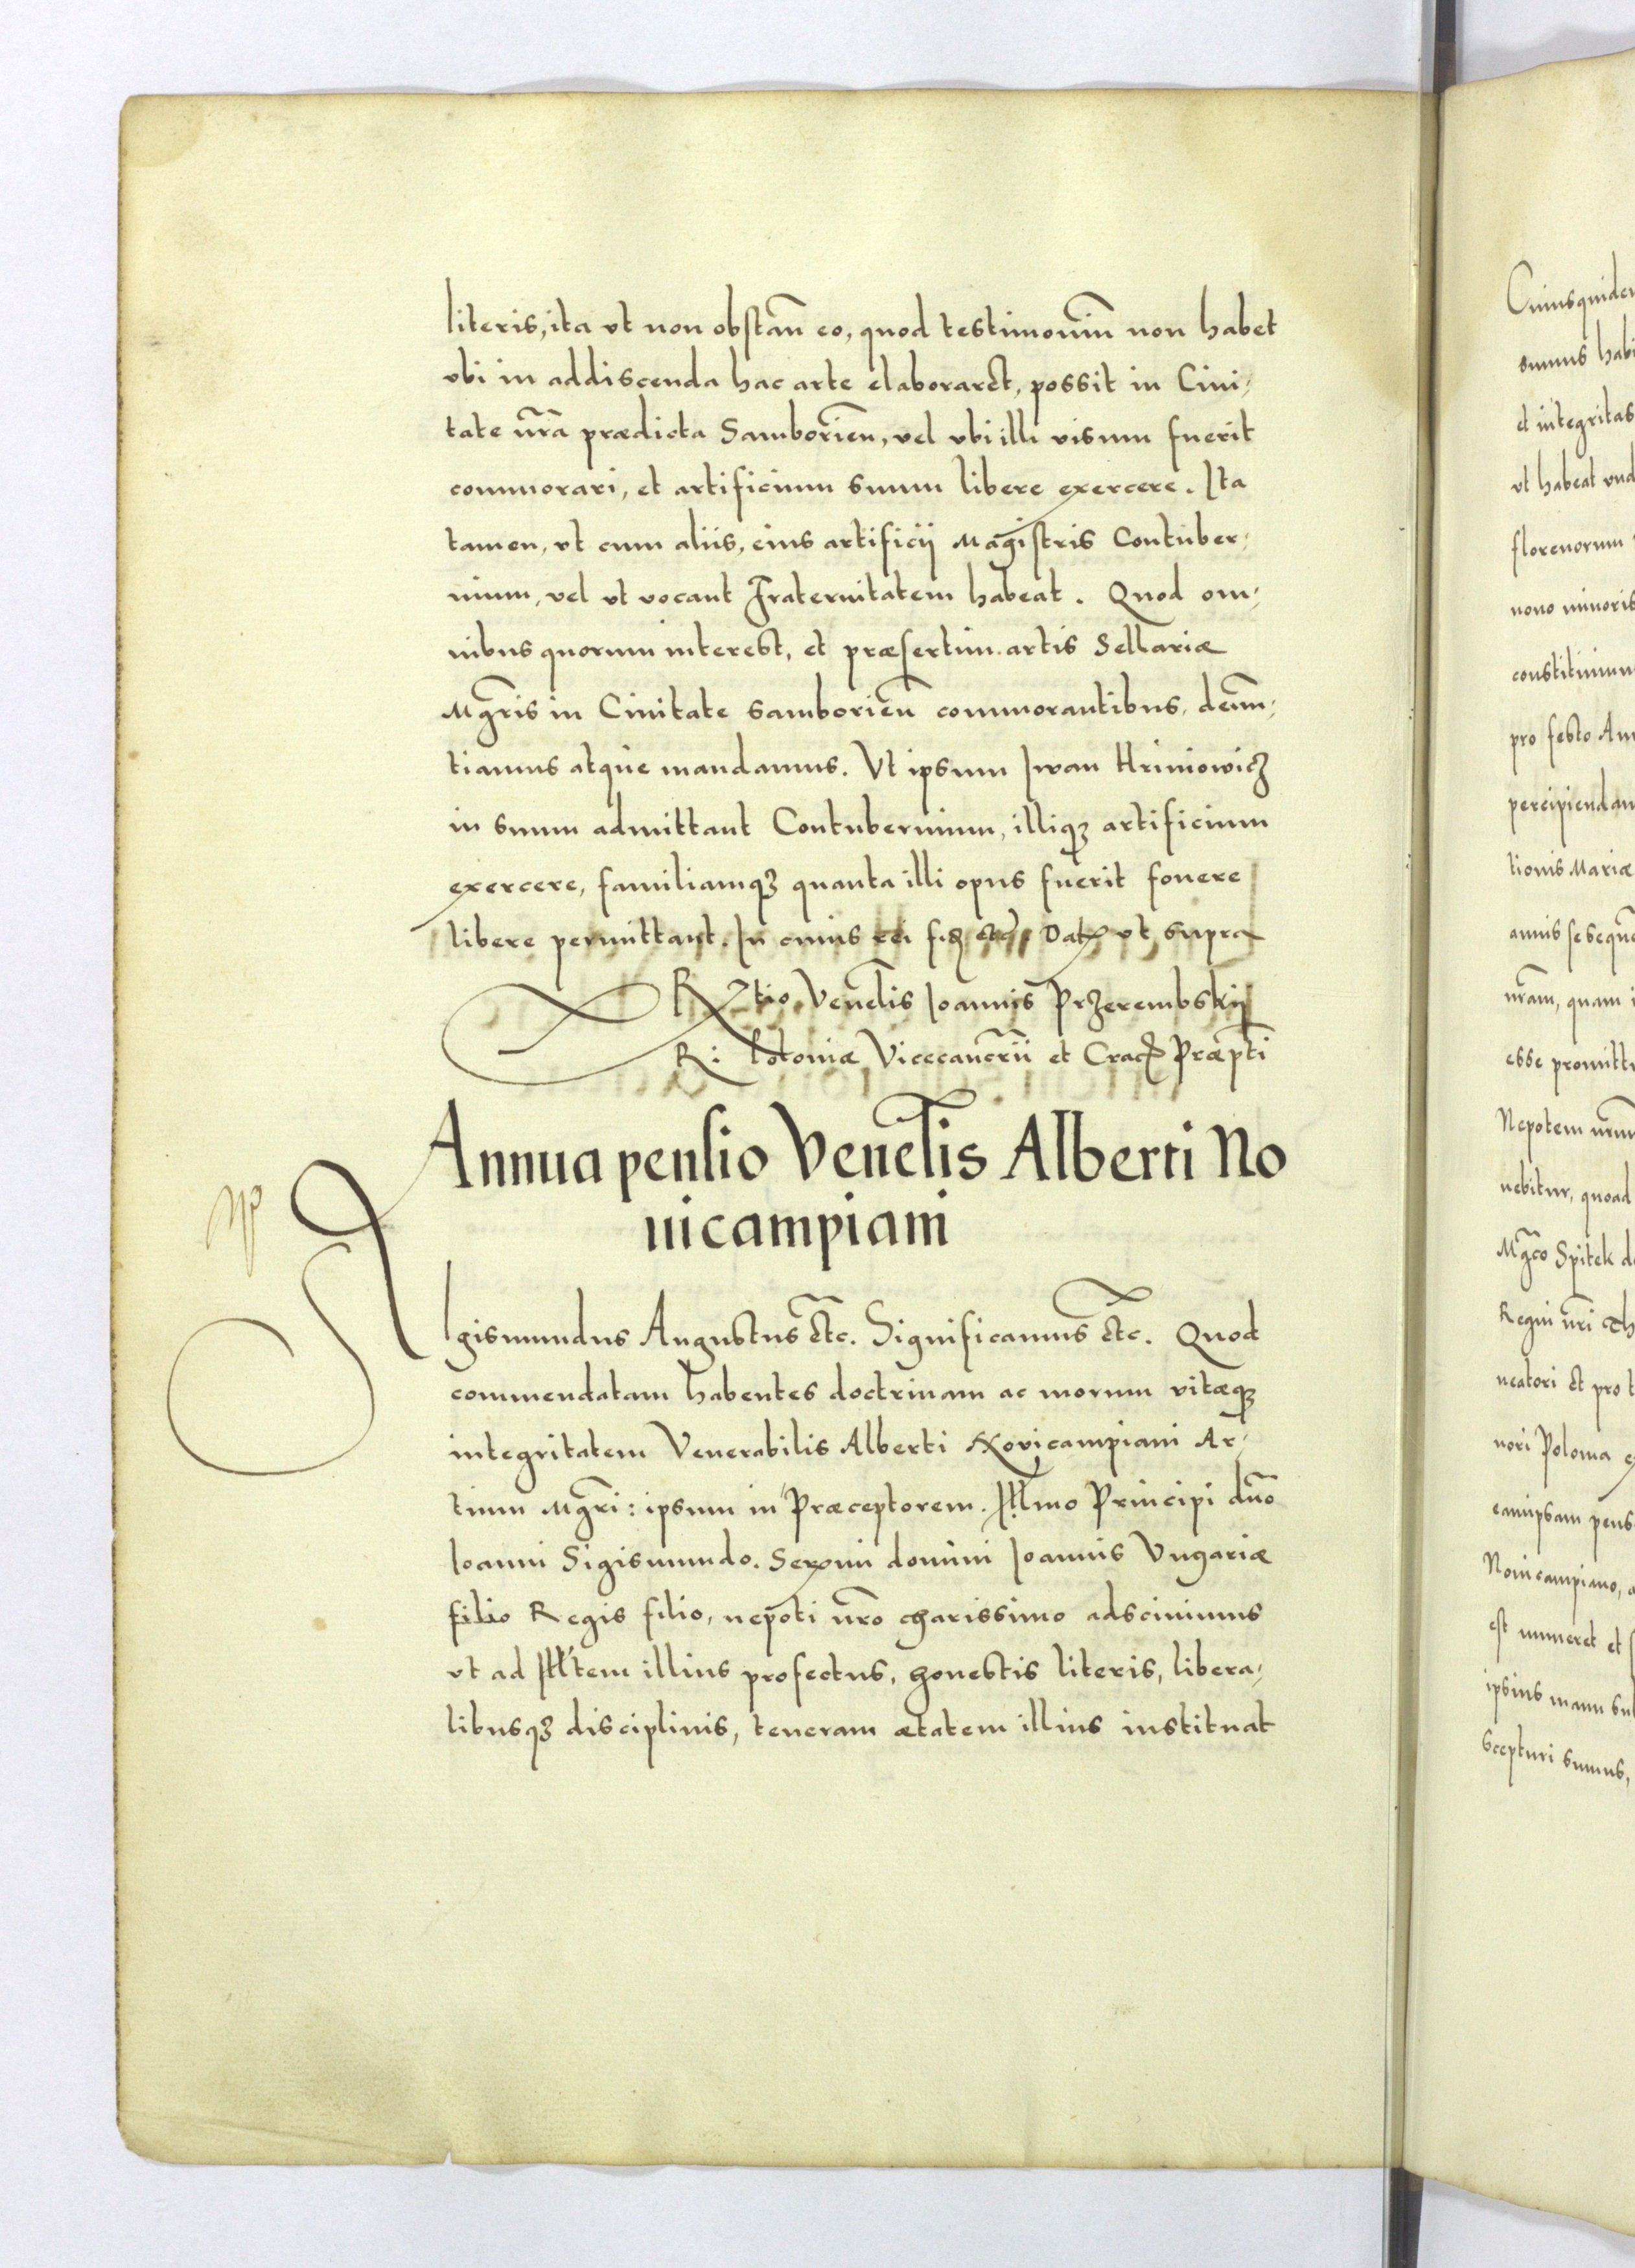 literis, ita vt non obstañ eo, quod testimoniũ non habet
vbi in addiscenda hac arte elaboraret, possit in Ciui,
tate nr̃a prædicta Samborieñ, vel vbi illi visum fuerit
commorari, et artificium suum libere exercere. Ita
tamen, vt cum aliis, eius artificij Magistris Contuber,
nium, vel vt vocant Fraternitatem habeat. Quod om,
nibus quorum interest, et præsertim artis Sellariæ
Mgr̃is in Ciuitate Samborieñ commorantibus, denũ,
tiamus atque mandamus. Vt ipsum Iwan Hriniowicz
in suum admittant Contubernium, illiqꝫ artificium
exercere, familiamqꝫ quanta illi opus fuerit fouere
libere permittant. In cuius rei fid etc̃ Datꝭ vt supra
Rtio Venelis̃ Ioannis Przerembskij
R: Poloniæ Vicecancr̃ii et Cracꝭ Præpti
Annua pensio Venelis̃ Alberti No
uicampiani
Sigismundus Augustus etc̃. Significamus etc̃. Quod
commendatam habentes doctrinam ac morum vitæqꝫ
integritatem Venerabilis Alberti Nouicampiani Ar,
tium Mgr̃i: ipsum in Præceptorem. Illmo Principi dn̄o
Ioanni Sigismundo. Sermi domini Ioannis Vngariæ
filio Regis filio, nepoti nr̃o charissimo adsciuimus
vt ad Illtem illius profectus, honestis literis, libera,
libusqꝫ disciplinis, teneram ætatem illius instituat
Cuiusquidem
sumus
et integritas
vt habeat
florenorum
nono minoris
pro festo
tionis Mariæ
nr̃am, quam
Nepotem
uebitur, quoad
Mgco Spitek
Regni nr̃i
neatori et pro
nori Polonia
Nouicampiano,
est numeret et
ipsius manu
scepturi sumus,